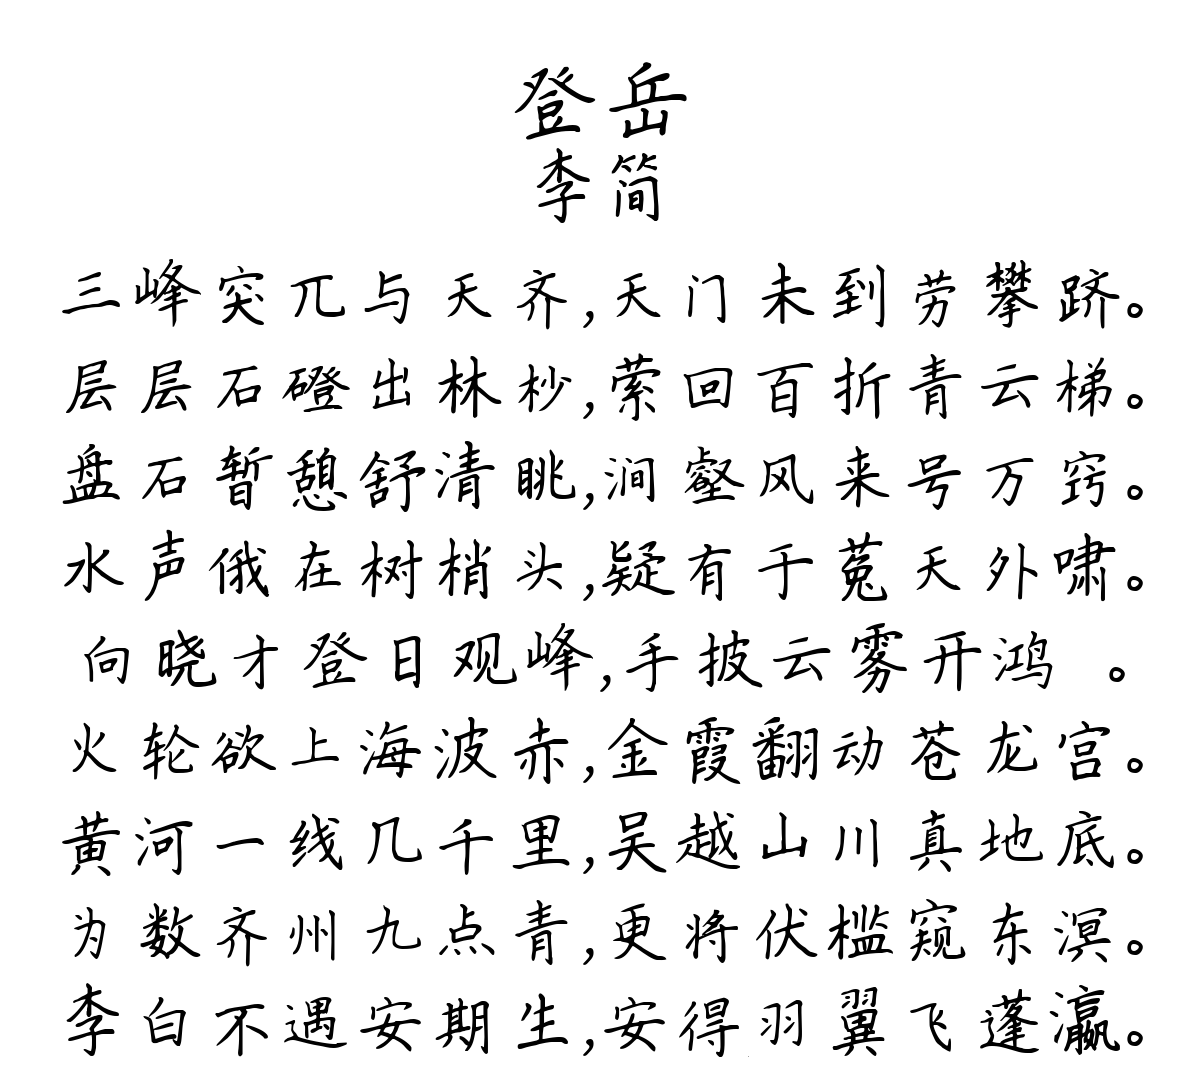 登岳
李简
三峰突兀与天齐,天门未到劳攀跻。
层层石磴出林杪,萦回百折青云梯。
盘石暂憩舒清眺,涧壑风来号万窍。
水声俄在树梢头,疑有于菟天外啸。
向晓才登日观峰,手披云雾开鸿 。
火轮欲上海波赤,金霞翻动苍龙宫。
黄河一线几千里,吴越山川真地底。
为数齐州九点青,更将伏槛窥东溟。
李白不遇安期生,安得羽翼飞蓬瀛。